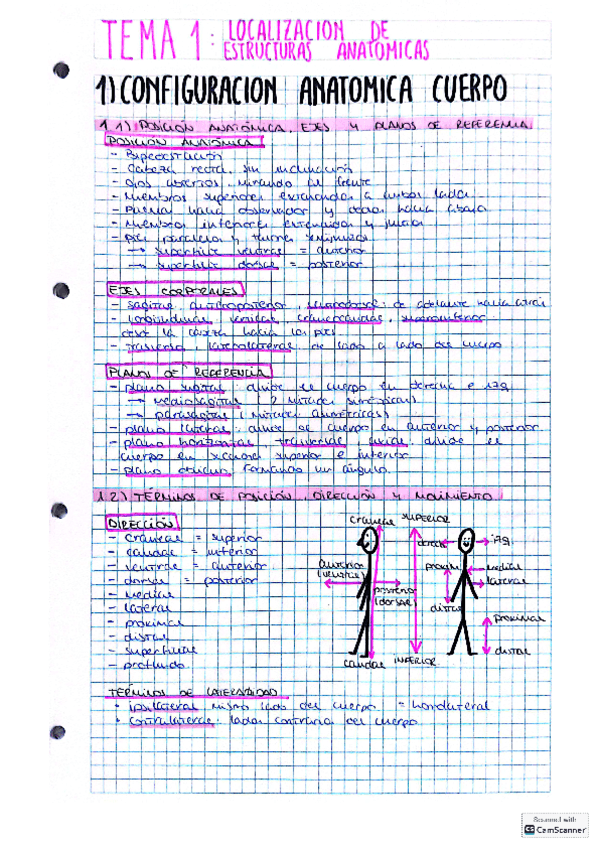 TEMA 1: LOCALIZACION DE
ESTRUCTURAS ANATOMICAS
1) CONFIGURACION ANATOMICA CUERPO
1.1) POSICIÓN ANATÓMICA, EJES Y PLANOS DE REFERENCIA
POSICIÓN ANATÓMICA
- Bipedestación
- Cabeza recta, sin inclinación
- Ojos abiertos, mirando al frente
- Miembros superiores extendidos a ambos lados
- Palmas hacia observador y dedos hacia abajo
- Miembros inferiores extendidos y juntos
- Pies paralelos y
→ superficie ventral = anterior
→ superficie dorsal = posterior
EJES CORPORALES
- sagital, anteroposterior, ventrodorsal: de adelante hacia atrás
- longitudinal, vertical, craneocaudal, superoinferior:
desde la cabeza hacia los pies
- trasverso, laterolateral: de lado a lado del cuerpo
PLANOS DE REFERENCIA
- plano sagital: divide el cuerpo en derecha e izq
→ mediosagital (2 mitades simétricas)
→ parasagital (mitades asimétricas)
- plano : divide el cuerpo en anterior y posterior
- plano horizontal, transversal, axial: divide el
cuerpo en superior e inferior
- plano oblicuo: formando un ángulo.
1.2) TÉRMINOS DE POSICIÓN, DIRECCIÓN Y MOVIMIENTO
DIRECCIÓN
- Craneal = superior
- caudal = inferior
- ventral = anterior
- dorsal = posterior
- medial
- lateral
- proximal
- distal
- superficial
- profundo
craneal
SUPERIOR
anterior
(ventral)
posterior
(dorsal)
caudal
INFERIOR
derecha
izq
proximal
medial
lateral
distal
proximal
distal
TÉRMINOS DE LATERALIDAD
· ipsilateral: mismo lado del cuerpo = homolateral
· contralateral: lados contrarios del cuerpo
Scanned with
CS CamScanner